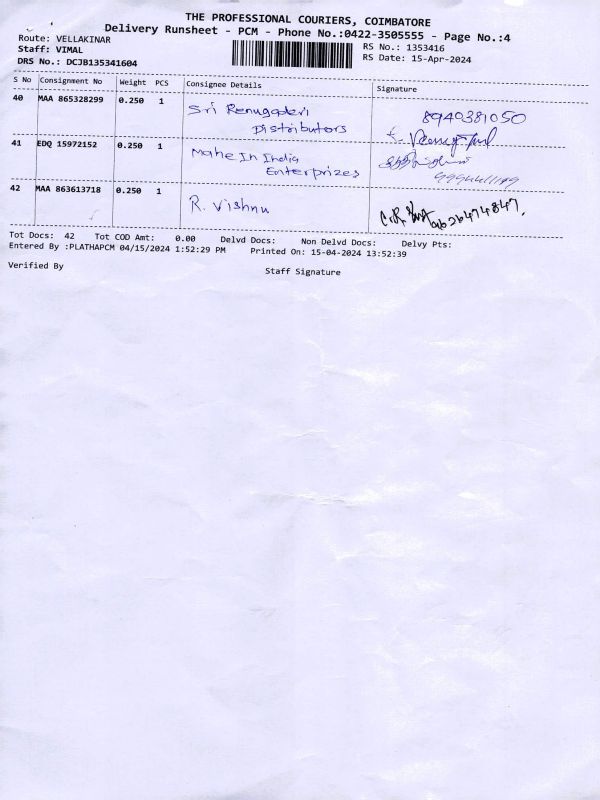 THE PROFESSIONAL COURIERS, COIMBATORE
Delivery Runsheet - PCM - Phone No.:0422-3505555 - Page No.:4
Route: VELLAKINAR
RS No.: 1353416
Staff: VIMAL
RS Date: 15-Apr-2024
DRS No.: DCJB135341604
S No Consignment No Weight PCS Consignee Details Signature
40 MAA 865328299 0.250 1 Sri Renugadevi 8940381050
Distributors
41 EDQ 15972152 0.250 1 Make In India
Enterprizes
42 MAA 863613718 0.250 1 R. Vishnu 9626474847.
Tot Docs: 42 Tot COD Amt: 0.00 Delvd Docs: Non Delvd Docs: Delvy Pts:
Entered By :PLATHAPCM 04/15/2024 1:52:29 PM Printed On: 15-04-2024 13:52:39
Verified By Staff Signature